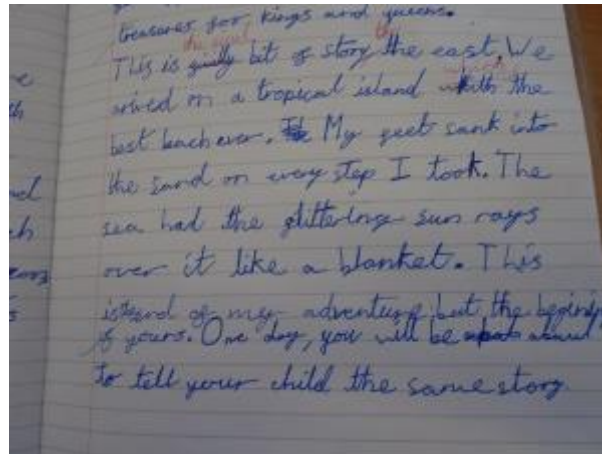 treasures for, kings and queens.
This is bit of story the east, We
arived on a tropical island with the
best beach ever. My feet sank into
the sand on every step I took. The
sea had the glittering sun rays
over it like a blanket. This
is end of my adventure but the begining
of yours. One day, you will be
to tell your child the same story